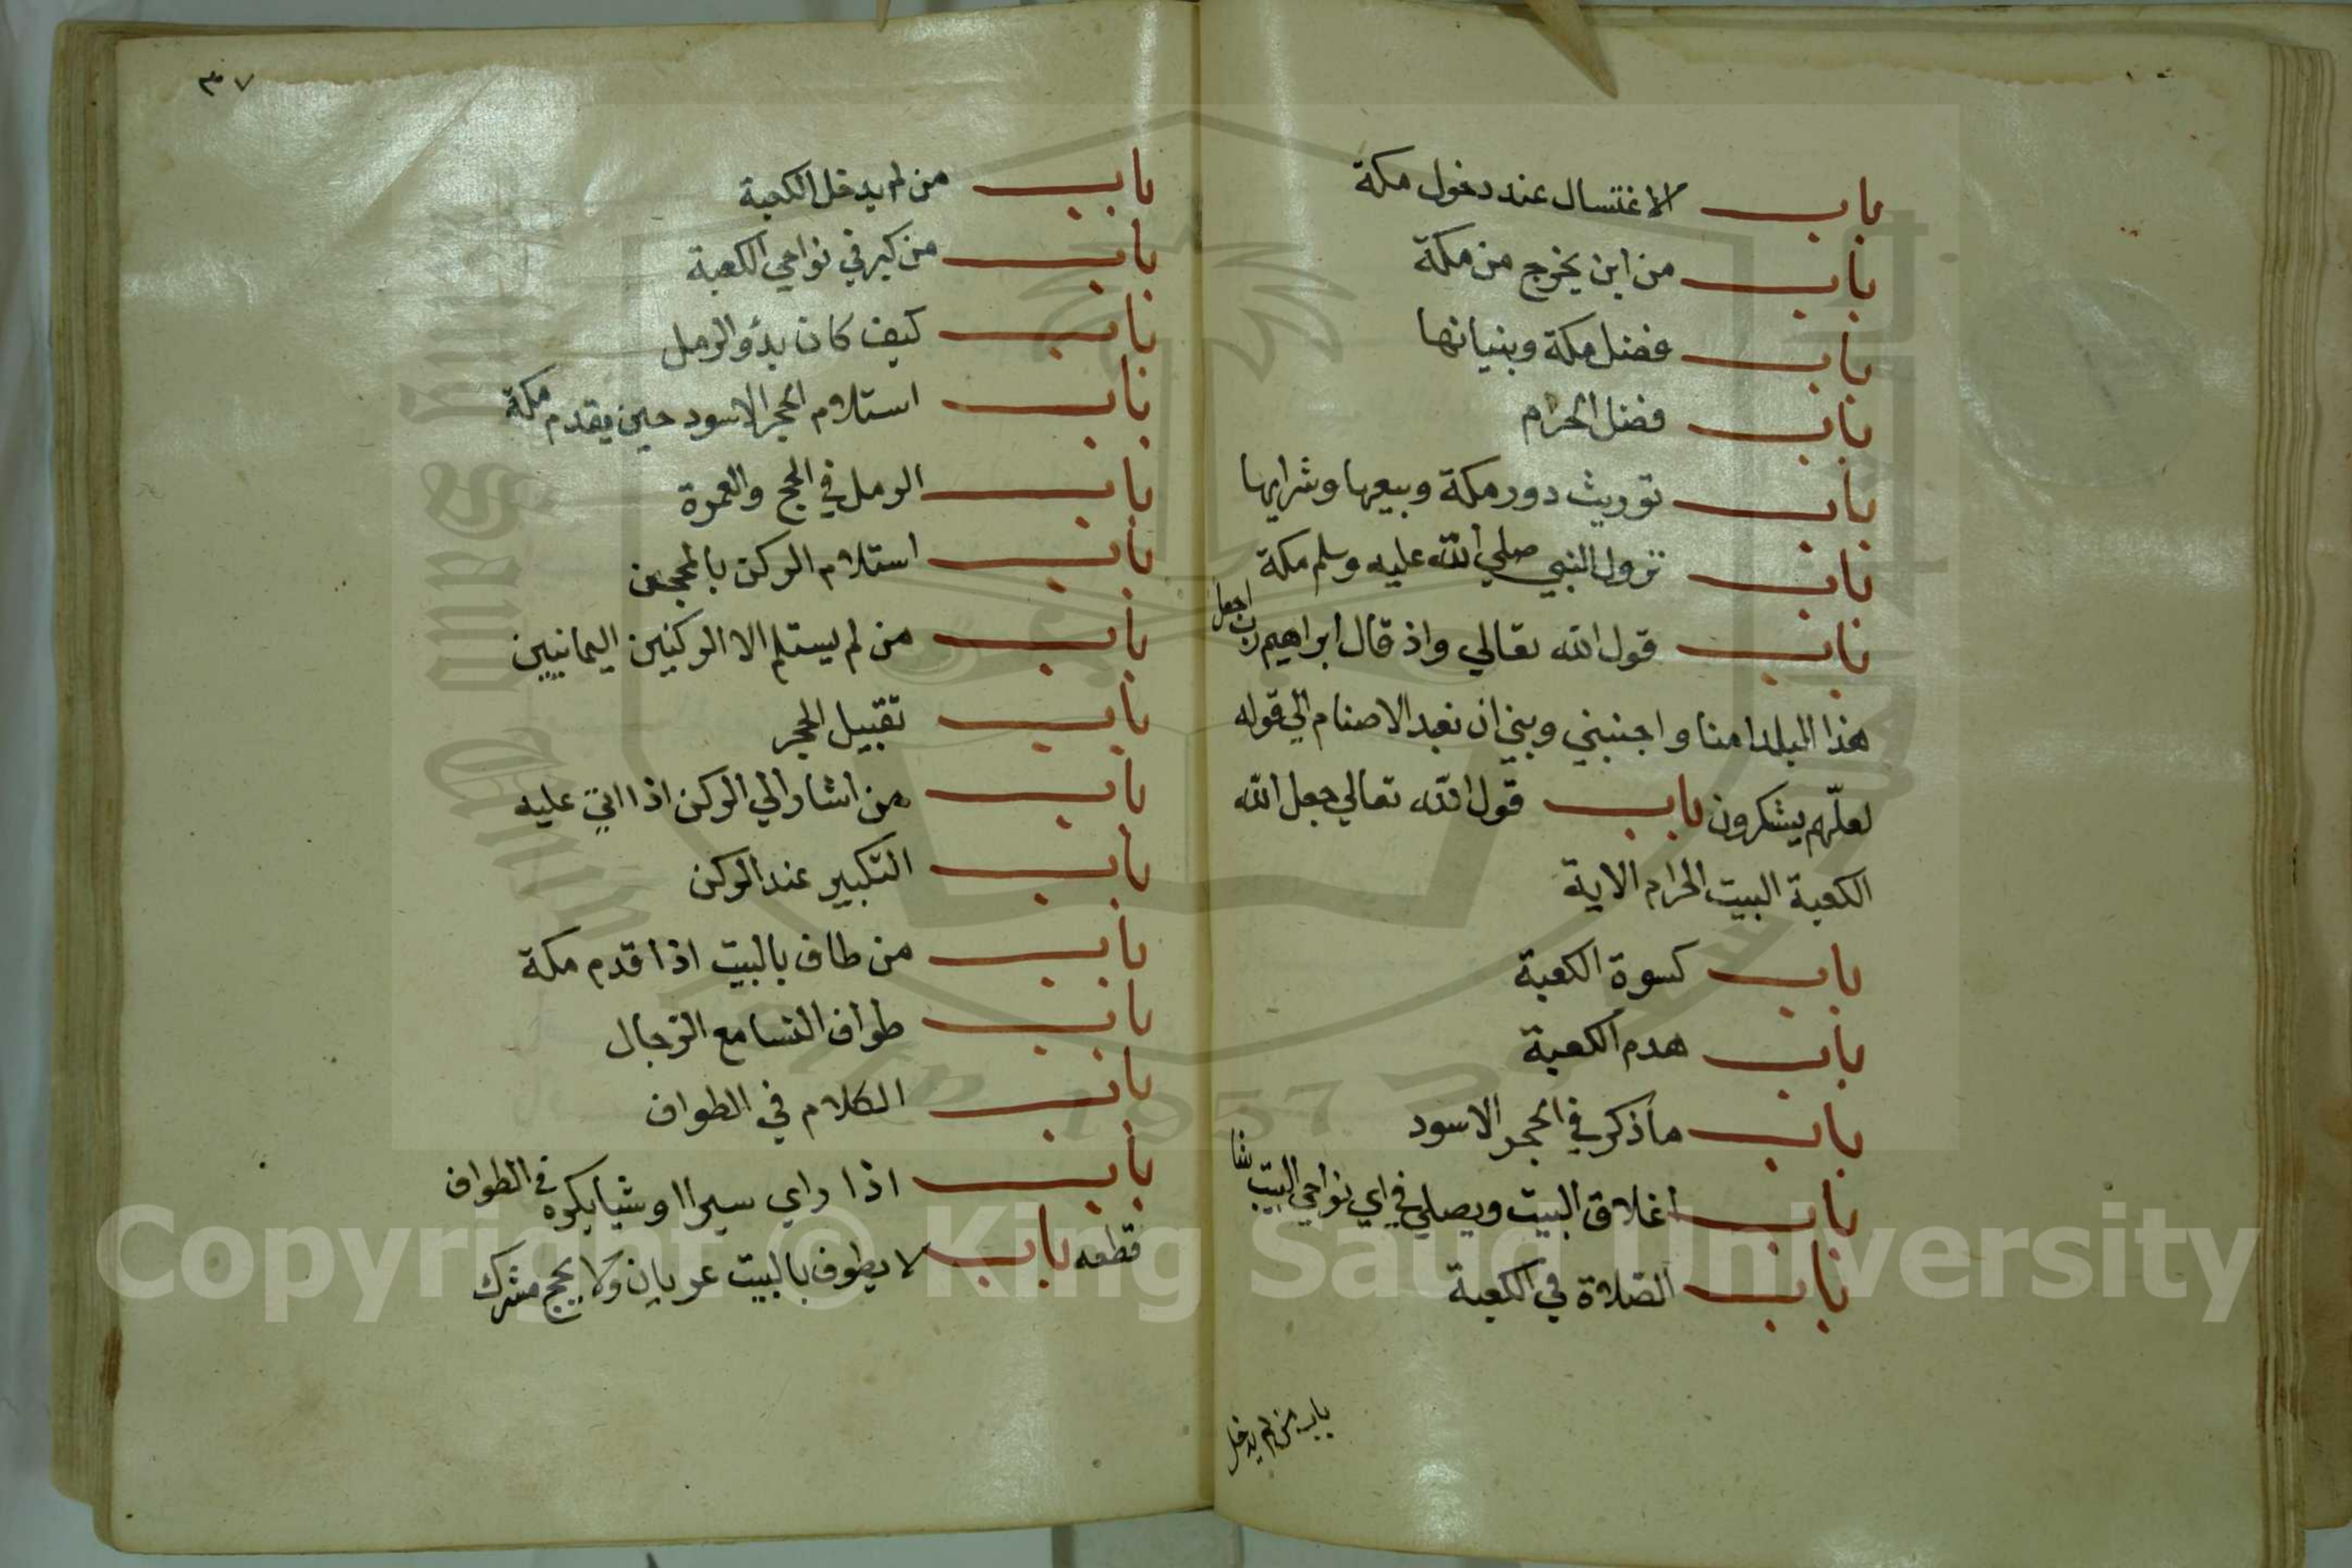 باب الاغتسال عند دخول مكة
باب من اين يخرج من مكة
باب فضل مكة وبنيانها
باب فضل الحرام
باب توريث دور مكة وبيعها وشرايها
باب نزول النبي صلي الله عليه وسلم مكة
باب قول الله تعالي واذ قال ابراهيم رب اجعل
هذا البلد امنا واجنبني وبني ان نعبد الاصنام الي قوله
لعلّهم يشكرون باب قول الله تعالي جعل الله
الكعبة البيت الحرام الاية
باب كسوة الكعبة
باب هدم الكعبة
باب ما ذكر في الحجر الاسود
باب اغلاق البيت ويصلي في اي نواحي البيت شا
باب الصلاة في الكعبة
باب من لم يدخل
٣٧
باب من لم يدخل الكعبة
باب من كبر في نواحي الكعبة
باب كيف كان بدؤ الرمل
باب استلام الحجر الاسود حين يقدم مكة
باب الرمل في الحج والعمرة
باب استلام الركن بالمحجن
باب من لم يستلم الا الركنين اليمانيين
باب تقبيل الحجر
باب من اشار الي الركن اذا اتي عليه
باب التكبير عند الركن
باب من طاف بالبيت اذا قدم مكة
باب طواف النسا مع الرجال
باب الكلام في الطواف
باب اذا راي سيرا او شيا يكره في الطواف
قطعه باب لا يطوف بالبيت عريان ولا يحج مشرك
Copyright © King Saud University
1957